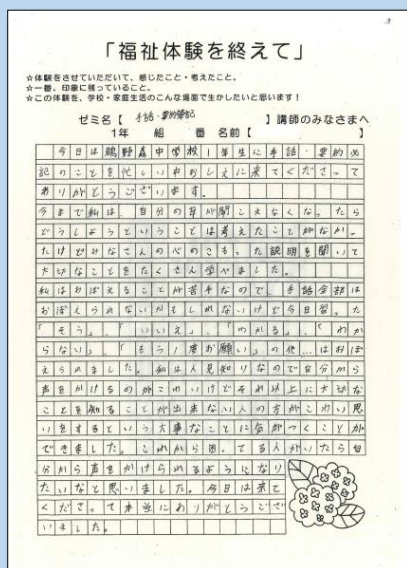 3
「福祉体験を終えて」
☆体験をさせていただいて、感じたこと・考えたこと。
☆一番、印象に残っていること。
☆この体験を、学校・家庭生活のこんな場面で生かしたいと思います！
ゼミ名【 手話・要約筆記 】講師のみなさまへ
1年 組 番 名前【 】
今日は鵜野森中学校1年生に手話・要約必
記のことを忙しい中おしえに来てくださって
ありがとうございます。
今まで私は、自分の耳が聞こえなくなったら
どうしようということは考えたことがなかっ
たけどみなさんの心のこもった説明を聞いて
大切なことをたくさん学べました。
私はおぼえることが苦手なので、手話全部は
おぼえられないかもしれないけど今日習った
「そう」、「いいえ」、「わかる」、「わか
らない」、「もう1度お願い」の他…はおぼ
えられました。私は人見知りなので自分から
声をかけるのがこわいけどそれ以上に大切な
ことを知ることが出来ない人の方がこわい思
いをするという大事なことに気がつくことが
できました。これから困ってる人がいたら自
分から声をかけられるようになり
たいなと思いました。今日は来て
くださって本当にありがとうござ
いました。